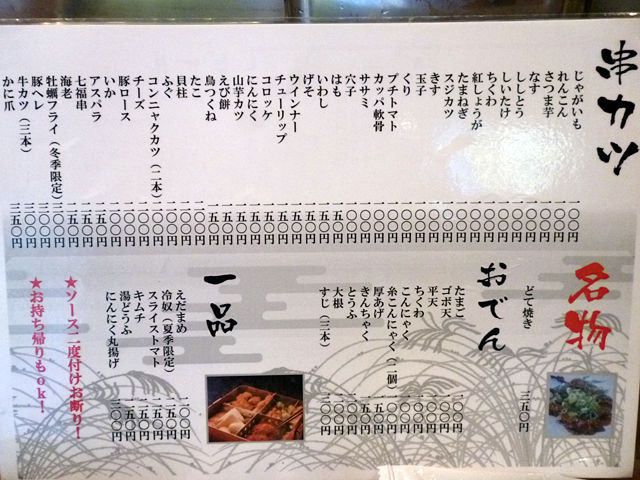 串カツ
じゃがいも 一〇〇円
れんこん 一〇〇円
さつま芋 一〇〇円
なす 一〇〇円
ししとう 一〇〇円
しいたけ 一〇〇円
ちくわ 一〇〇円
紅しょうが 一〇〇円
たまねぎ 一〇〇円
スジカツ 一〇〇円
きす 一〇〇円
玉子 一〇〇円
くり 一〇〇円
プチトマト 一〇〇円
カッパ軟骨 一〇〇円
ササミ 一〇〇円
穴子 一〇〇円
はも 一五〇円
いわし 一五〇円
げそ 一五〇円
ウインナー 一五〇円
チューリップ 一五〇円
コロッケ 一五〇円
にんにく 一五〇円
山芋カツ 一五〇円
えび餅 一五〇円
鳥つくね 一五〇円
たこ 二〇〇円
貝柱 二〇〇円
ふぐ 二〇〇円
コンニャクカツ（二本） 二〇〇円
チーズ 二〇〇円
豚ロース 二〇〇円
いか 二〇〇円
アスパラ 二五〇円
七福串 二五〇円
海老 二五〇円
牡蠣フライ（冬季限定） 三〇〇円
豚ヘレ 三〇〇円
牛カツ（三本） 三〇〇円
かに爪 三五〇円
名物
どて焼き 三五〇円
おでん
たまご
ゴボ天
平天
ちくわ
こんにゃく
糸こんにゃく（二個）
厚あげ
きんちゃく
とうふ
大根
すじ（三本）
一品
えだまめ
冷奴（夏季限定）
スライストマト
キムチ
湯どうふ
にんにく丸揚げ 三〇〇円
★ソース二度付けお断り！
★お持ち帰りもok！